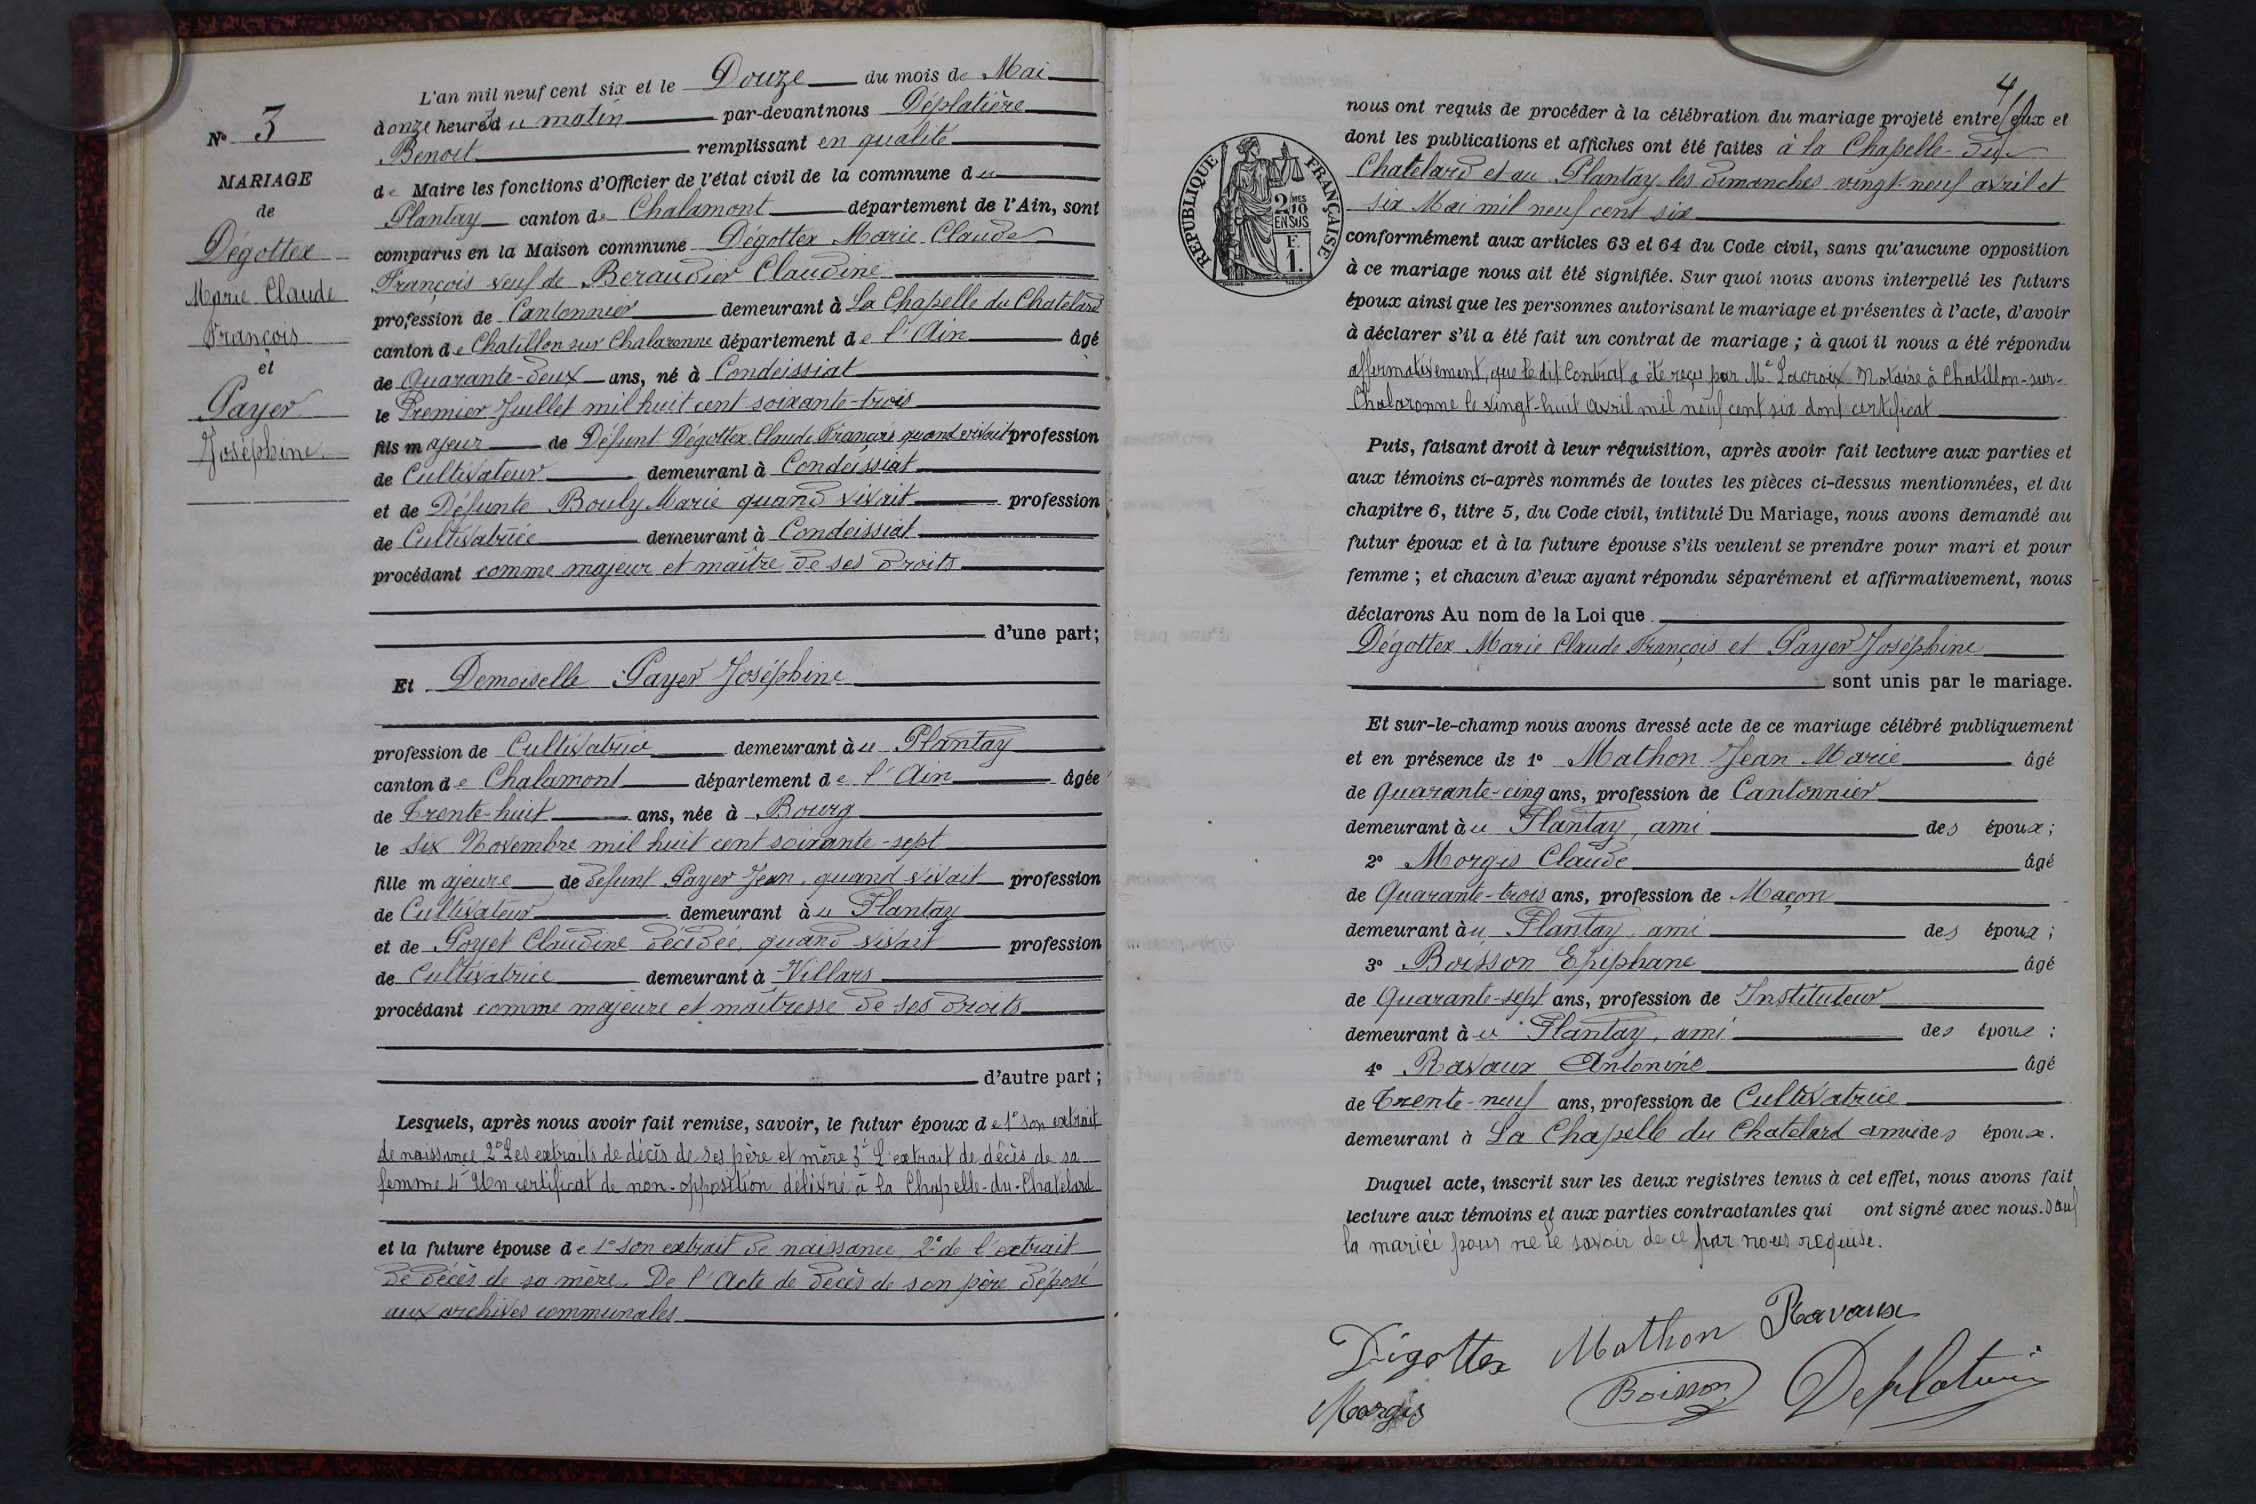 N° 3
MARIAGE
de
Dégottex
Marie Claude
François
et
Payer
Joséphine
L'an mil neuf cent six et le Douze du mois de Mai
à onze heures du matin par-devant nous Déplatière
Benoit remplissant en qualité
de Maire les fonctions d'Officier de l'état civil de la commune du
Plantay canton de Chalamont département de l'Ain, sont
comparus en la Maison commune Dégottex Marie Claude
François veuf de Beraudier Claudine
profession de Cantonnier demeurant à La Chapelle du Chatelard
canton de Chatillon sur Chalaronne département de l'Ain âgé
de Quarante-deux ans, né à Condeissiat
le Premier Juillet mil huit cent soixante-trois
fils majeur de Défunt Dégottex Claude François quand vivait profession
de Cultivateur demeurant à Condeissiat
et de Défunte Bouly Marie quand vivait profession
de Cultivatrice demeurant à Condeissiat
procédant comme majeur et maître de ses droits
d'une part;
Et Demoiselle Payer Joséphine
profession de Cultivatrice demeurant au Plantay
canton de Chalamont département de l'Ain âgée
de Trente-huit ans, née à Bourg
le six Novembre mil huit cent soixante-sept
fille majeure de défunt Payer Jean, quand vivait profession
de Cultivateur demeurant au Plantay
et de Poyet Claudine décédée, quand vivait profession
de Cultivatrice demeurant à Villars
procédant comme majeure et maîtresse de ses droits
d'autre part;
Lesquels, après nous avoir fait remise, savoir, le futur époux de 1° son extrait
de naissance 2° Les extraits de décès de ses père et mère 3° L'extrait de décès de sa
femme 4° Un certificat de non-opposition délivré à la Chapelle-du-Chatelard
et la future épouse de 1° son extrait de naissance, 2° de l'extrait
de décès de sa mère. De l'Acte de décès de son père déposé
aux archives communales
4
REPUBLIQUE FRANÇAISE
2/10 MES
EN SUS
F.
1.
nous ont requis de procéder à la célébration du mariage projeté entre eux et
dont les publications et affiches ont été faites à la Chapelle-du-
Chatelard et au Plantay les dimanches vingt-neuf avril et
six Mai mil neuf cent six
conformément aux articles 63 et 64 du Code civil, sans qu'aucune opposition
à ce mariage nous ait été signifiée. Sur quoi nous avons interpellé les futurs
époux ainsi que les personnes autorisant le mariage et présentes à l'acte, d'avoir
à déclarer s'il a été fait un contrat de mariage; à quoi il nous a été répondu
affirmativement, que le dit Contrat a été reçu par Me Lacroix Notaire à Chatillon-sur-
Chalaronne le vingt-huit avril mil neuf cent six dont certificat
Puis, faisant droit à leur réquisition, après avoir fait lecture aux parties et
aux témoins ci-après nommés de toutes les pièces ci-dessus mentionnées, et du
chapitre 6, titre 5, du Code civil, intitulé Du Mariage, nous avons demandé au
futur époux et à la future épouse s'ils veulent se prendre pour mari et pour
femme; et chacun d'eux ayant répondu séparément et affirmativement, nous
déclarons Au nom de la Loi que
Dégottex Marie Claude François et Payer Joséphine
sont unis par le mariage.
Et sur-le-champ nous avons dressé acte de ce mariage célébré publiquement
et en présence de 1° Mathon Jean Marie âgé
de Quarante-cinq ans, profession de Cantonnier
demeurant au Plantay, ami des époux;
2° Morgis Claude âgé
de Quarante-trois ans, profession de Maçon
demeurant au Plantay, ami des époux;
3° Boisson Epiphane âgé
de Quarante-sept ans, profession de Instituteur
demeurant au Plantay, ami des époux;
4° Ravaux Antonine âgé
de Trente-neuf ans, profession de Cultivatrice
demeurant à La Chapelle du Chatelard amie des époux.
Duquel acte, inscrit sur les deux registres tenus à cet effet, nous avons fait
lecture aux témoins et aux parties contractantes qui ont signé avec nous. sauf
la mariée pour ne le savoir de ce par nous requise.
Dégottex Mathon Ravaux
Morgis Boisson Deplatière